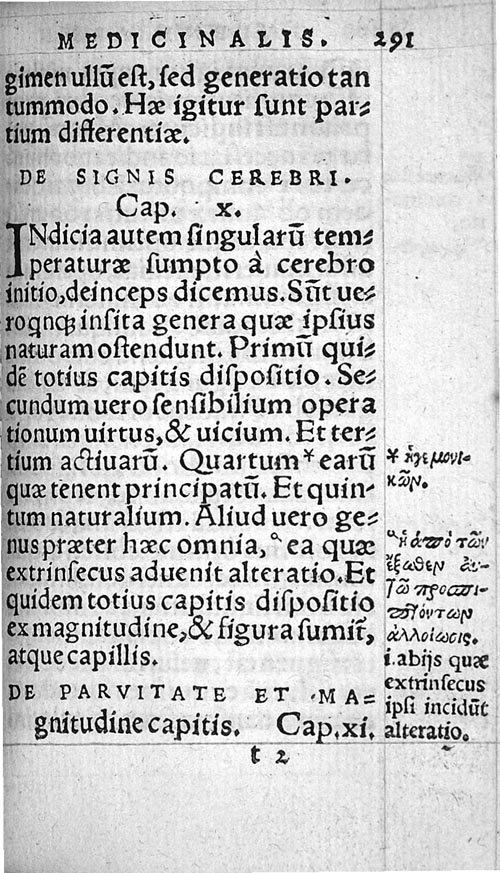 MEDICINALIS. 291
gimen ullũ est, sed generatio tan
tummodo. Hæ igitur sunt par⸗
tium differentiæ.
DE SIGNIS CEREBRI.
Cap. x.
INdicia autem singularũ tem⸗
peraturæ sumpto à cerebro
initio, deinceps dicemus. Sũt ue⸗
ro qnqꝫ insita genera quæ ipsius
naturam ostendunt. Primũ qui⸗
dẽ totius capitis dispositio. Se⸗
cundum uero sensibilium opera
tionum uirtus, & uicium. Et ter⸗
tium actiuarũ. Quartum * earũ
quæ tenent principatũ. Et quin⸗
tum naturalium. Aliud uero ge⸗
nus præter hæc omnia, ᵃ ea quæ
extrinsecus aduenit alteratio. Et
quidem totius capitis dispositio
ex magnitudine, & figura sumit̃,
atque capillis.
DE PARVITATE ET MA⸗
gnitudine capitis. Cap. xi.
t 2
* ἡγεμονι-
κῶν.
ᵃ ἡ ἀπὸ τῶν
ἔξωθεν αὐ-
τῷ προσπι-
πτόντων
ἀλλοίωσις.
i. ab ijs quæ
extrinsecus
ipsi incidũt
alteratio.